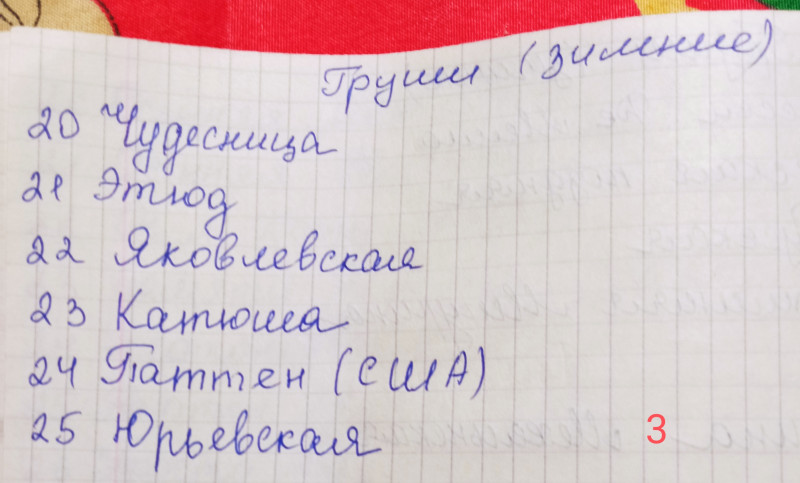 Груши (зимние)
20 Чудесница
21 Этюд
22 Яковлевская
23 Катюша
24 Паттен (США)
25 Юрьевская
3